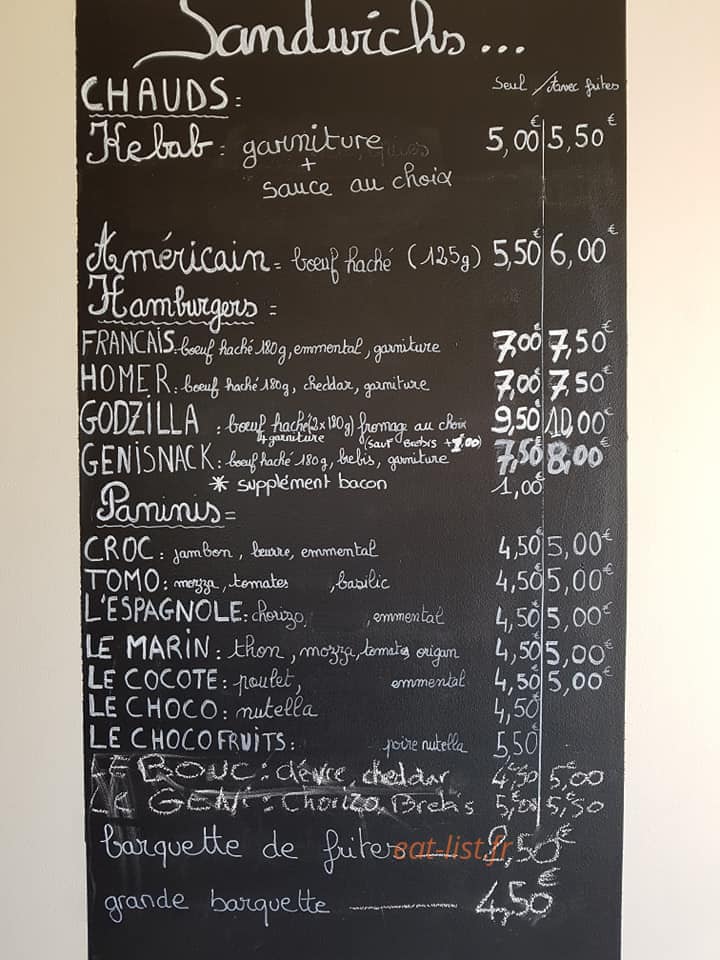 Sandwichs...
Seul / Avec frites
CHAUDS:
Kebab: garniture 5,00€ 5,50€
+
sauce au choix
Américain= bœuf haché (125g) 5,50€ 6,00€
Hamburgers =
FRANCAIS: bœuf haché 180g, emmental, garniture 7,00€ 7,50€
HOMER: bœuf haché 180g, cheddar, garniture 7,00€ 7,50€
GODZILLA : bœuf haché(2x180g) fromage au choix 9,50€ 10,00€
+ garniture (sauf Brebis +1,00)
GENISNACK: bœuf haché 180g, brebis, garniture 7,50€ 8,00€
* supplément bacon 1,00€
Paninis=
CROC: jambon, beurre, emmental 4,50€ 5,00€
TOMO: mozza, tomates ,basilic 4,50€ 5,00€
L'ESPAGNOLE: chorizo, ,emmental 4,50€ 5,00€
LE MARIN: thon, mozza, tomates origan 4,50€ 5,00€
LE COCOTE: poulet, emmental 4,50€ 5,00€
LE CHOCO: nutella 4,50€
LE CHOCOFRUITS: poire nutella 5,50€
LE BOUC: chèvre, cheddar 4,50 5,00€
LE GENI: Chorizo, Brebis 5,00 5,50€
barquette de frites ,50€
eat-list.fr
grande barquette 4,50€